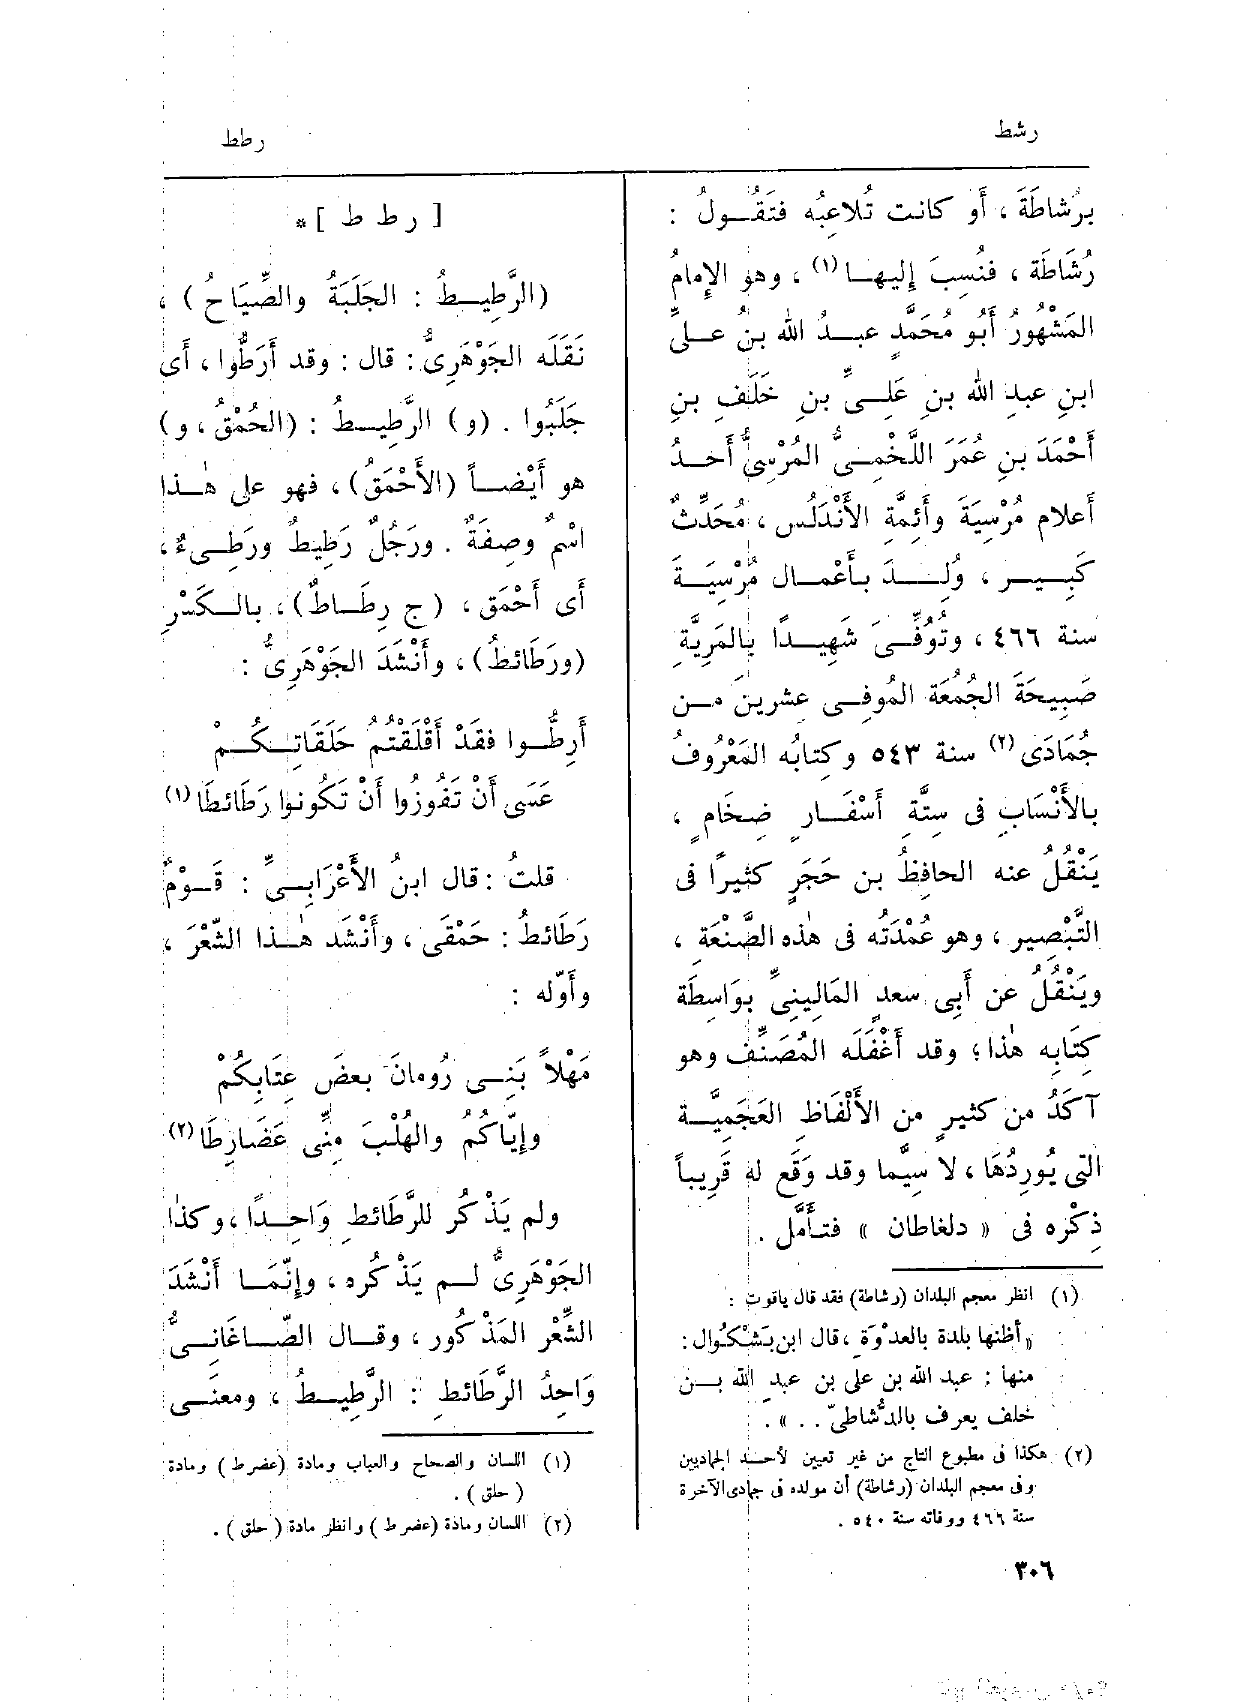 رشط
رطط
برُشاطَةَ ، أَو كانت تُلاعِبُه فتَقُــولُ :
رُشَاطَة ، فنُسِبَ إِليهــا(١) ، وهو الإِمامُ
المَشْهُورُ أَبُو مُحَمَّدٍ عبــدُ الله بنُ عــلىِّ
ابنِ عبدِ الله بنِ عَلِــىِّ بنِ خَلَفِ بنِ
أَحْمَدَ بنِ عُمَرَ اللَّخْمــىُّ المُرْسِىُّ أَحــدُ
أَعلام مُرْسِيَةَ وأَئِمَّةِ الأَنْدَلُس ، مُحَدِّثٌ
كَبِــيــر ، وُلِــــدَ بــأَعْمــال مُرْسِيَــةَ
سنة ٤٦٦ ، وتُوُفِّــىَ شَهِيــدًا بالمَرِيَّةِ
صَبِيحَةَ الجُمُعَة المُوفِــى عشرينَ مــن
جُمَادَى(٢) سنة ٥٤٣ وكتابُه المَعْرُوفُ
بالأَنْسَابِ فى سِتَّةِ أَسْفَــارٍ ضِخَامٍ ،
يَنْقُلُ عنه الحافِظُ بن حَجَرٍ كثيرًا فى
التَّبْصِير ، وهو عُمْدَتُه فى هٰذه الصَّنْعَةِ ،
ويَنْقُلُ عن أَبِى سعدٍ المَالِينِىِّ بوَاسِطَة
كِتَابِه هٰذا ؛ وقد أَغْفَلَه المُصَنِّف وهو
آكَدُ من كثيرٍ من الأَلْفَاظِ العَجَمِيَّــة
التى يُورِدُهَا ، لا سِيَّما وقد وَقَع له قَرِيباً
ذِكْره فى « دلغاطان » فتــأَمَّل .
(١) انظر معجم البلدان (رشاطة) فقد قال ياقوت :
« أظنها بلدة بالعدْوَة ، قال ابن بَشْكُوال :
منها : عبد الله بن على بن عبد الله بــن
خلف يعرف بالرُّشاطىّ . . » .
(٢) هكذا فى مطبوع التاج من غير تعيين لأحــد الجماديين
وفى معجم البلدان (رشاطة) أن مولده فى جمادى الآخرة
سنة ٤٦٦ ووفاته سنة ٥٤٠ .
٣٠٦
[ ر ط ط ]*
(الرَّطِيــطُ : الجَلَبَةُ والصِّيَاحُ) ،
نَقَلَه الجَوْهَرِىُّ : قال : وقد أَرَطُّوا ، أَى
جَلَبُوا . (و) الرَّطِيــطُ : (الحُمْقُ ، و)
هو أَيْضــاً (الأَحْمَقُ) ، فهو على هٰــذا
اسْمٌ وصِفَةٌ . ورَجُلٌ رَطِيطٌ ورَطِــىءٌ ،
أَى أَحْمَق ، (ج رِطَــاطٌ) ، بالــكَسْرِ
(ورَطَائطُ) ، وأَنْشَدَ الجَوْهَرِىُّ :
أَرِطُّــوا فقَدْ أَقْلَقْتُمْ حَلَقَاتِــكُــمْ
عَسَى أَنْ تَفُوزُوا أَنْ تَكُونوا رَطَائطَا(١)
قلتُ : قال ابنُ الأَعْرَابِــىِّ : قَــوْمٌ
رَطَائطُ : حَمْقَى ، وأَنْشَد هٰــذا الشِّعْرَ ،
وأَوّله :
مَهْلاً بَنِــى رُومانَ بعضَ عِتَابِكُمْ
وإِيّاكُمُ والهُلْبَ مِنِّى عَضَارِطَا(٢)
ولم يَذْكُر للرَّطَائطِ وَاحِــدًا ، وكذا
الجَوْهَرِىُّ لــم يَذْكُره ، وإِنّمَــا أَنْشَدَ
الشِّعْر المَذْكور ، وقــال الصّاغَانِــىُّ
وَاحِدُ الرَّطَائطِ : الرَّطِيــطُ ، ومعنَــى
(١) اللسان والصحاح والعباب ومادة (عضرط) ومادة
(حلق) .
(٢) اللسان ومادة (عضرط) وانظر مادة (حلق) .